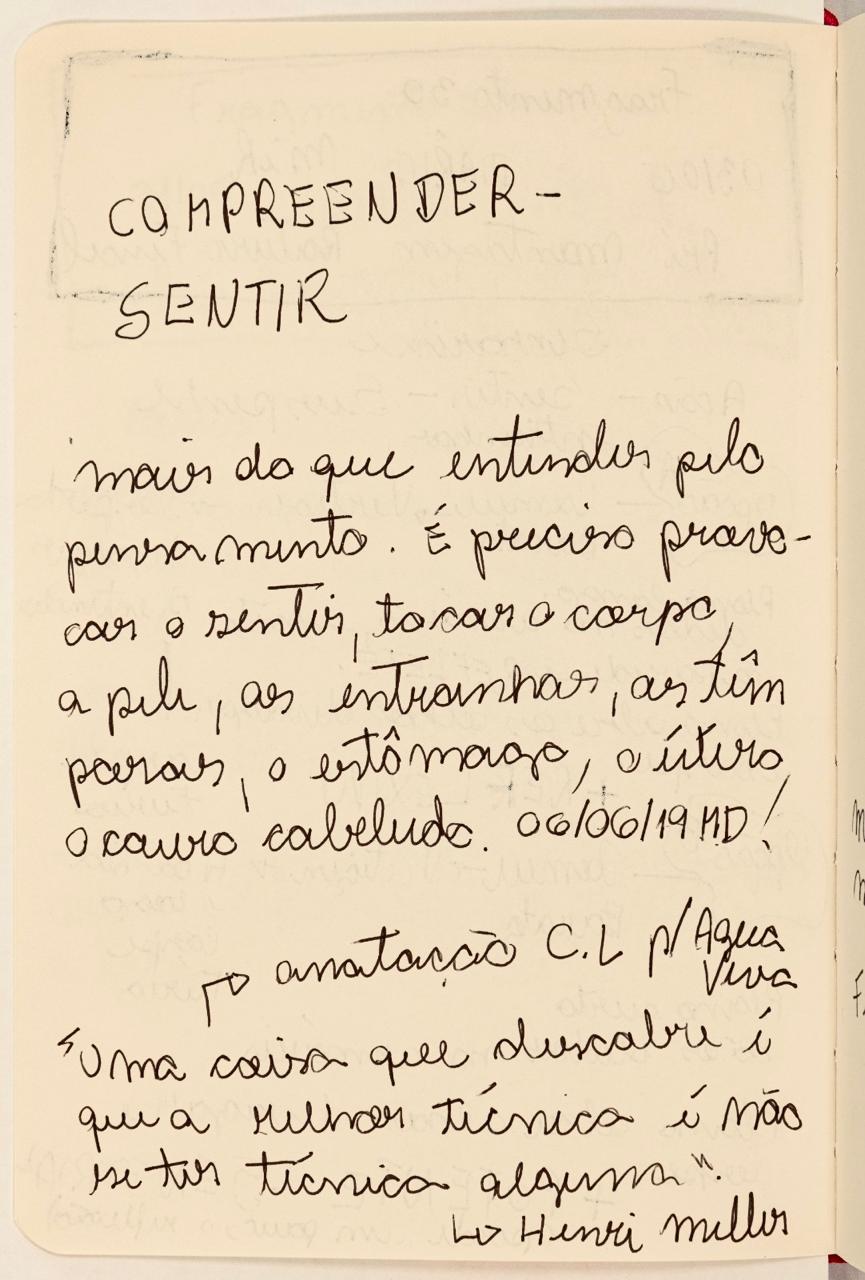 COMPREENDER-
SENTIR
mais do que entender pelo
pensamento. É preciso provo-
car o sentir, tocar o corpo,
a pele, as entranhas, as têm
poras, o estômago, o útero,
o couro cabeludo. 06/06/19 MD!
anotação C.L p/ Agua
Viva
"Uma coisa que descobri é
que a melhor técnica é não
se ter técnica alguma".
Henri Miller